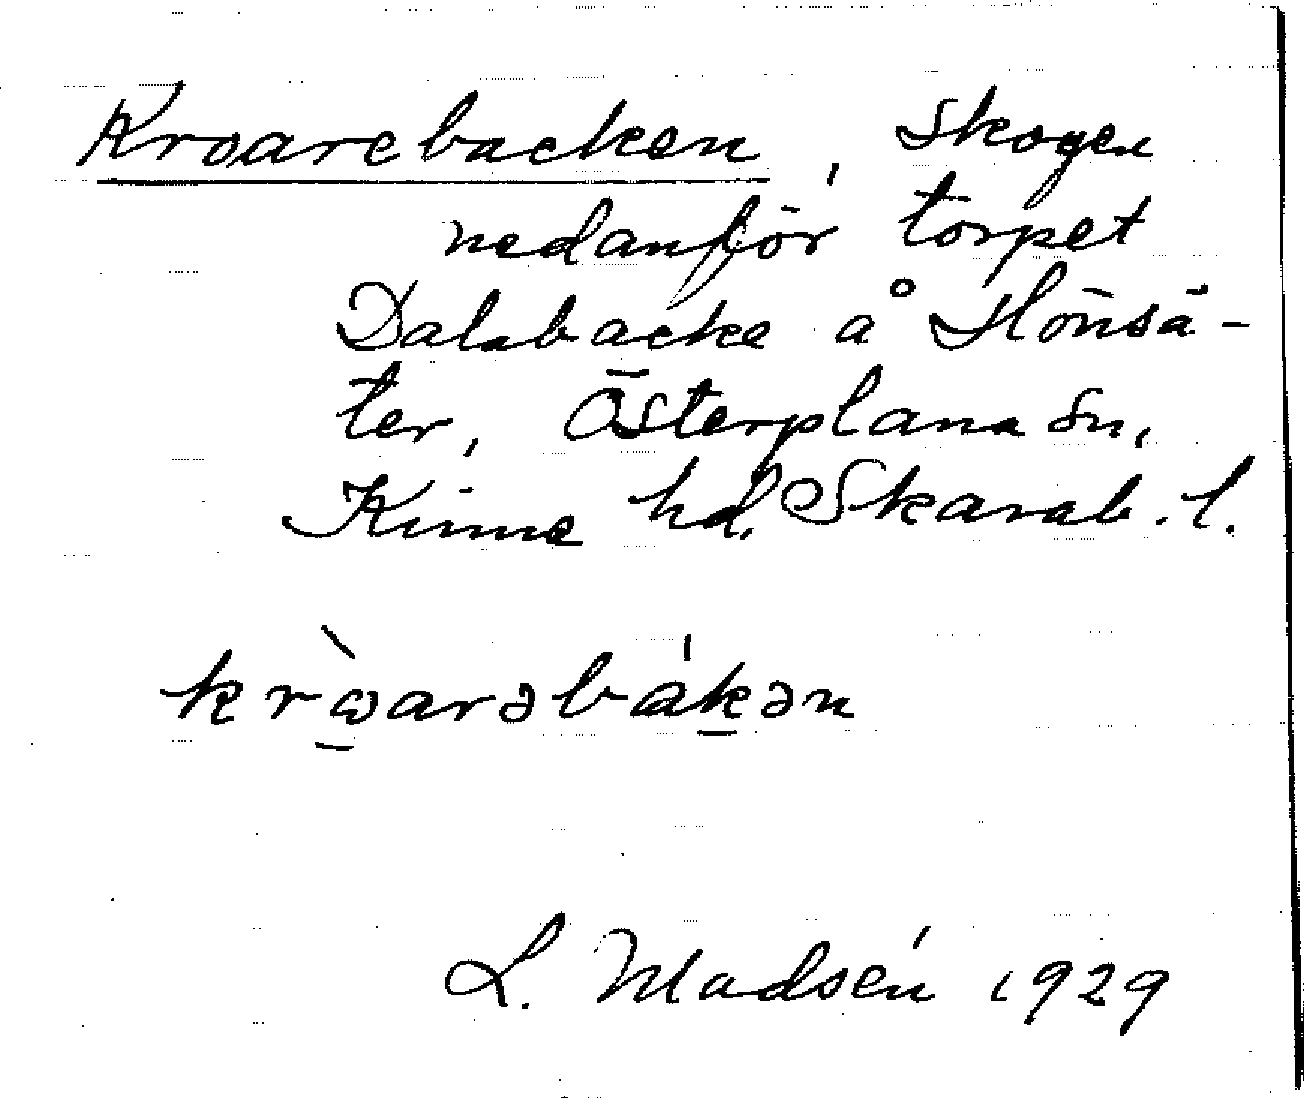 Kroarebacken, Skogen
nedanför torpet
Dalabacke å Hönsä-
ter, Österplana sn,
Kinne hd, Skarab. l.
krɷ̀arəbákən
L. Madsén 1929